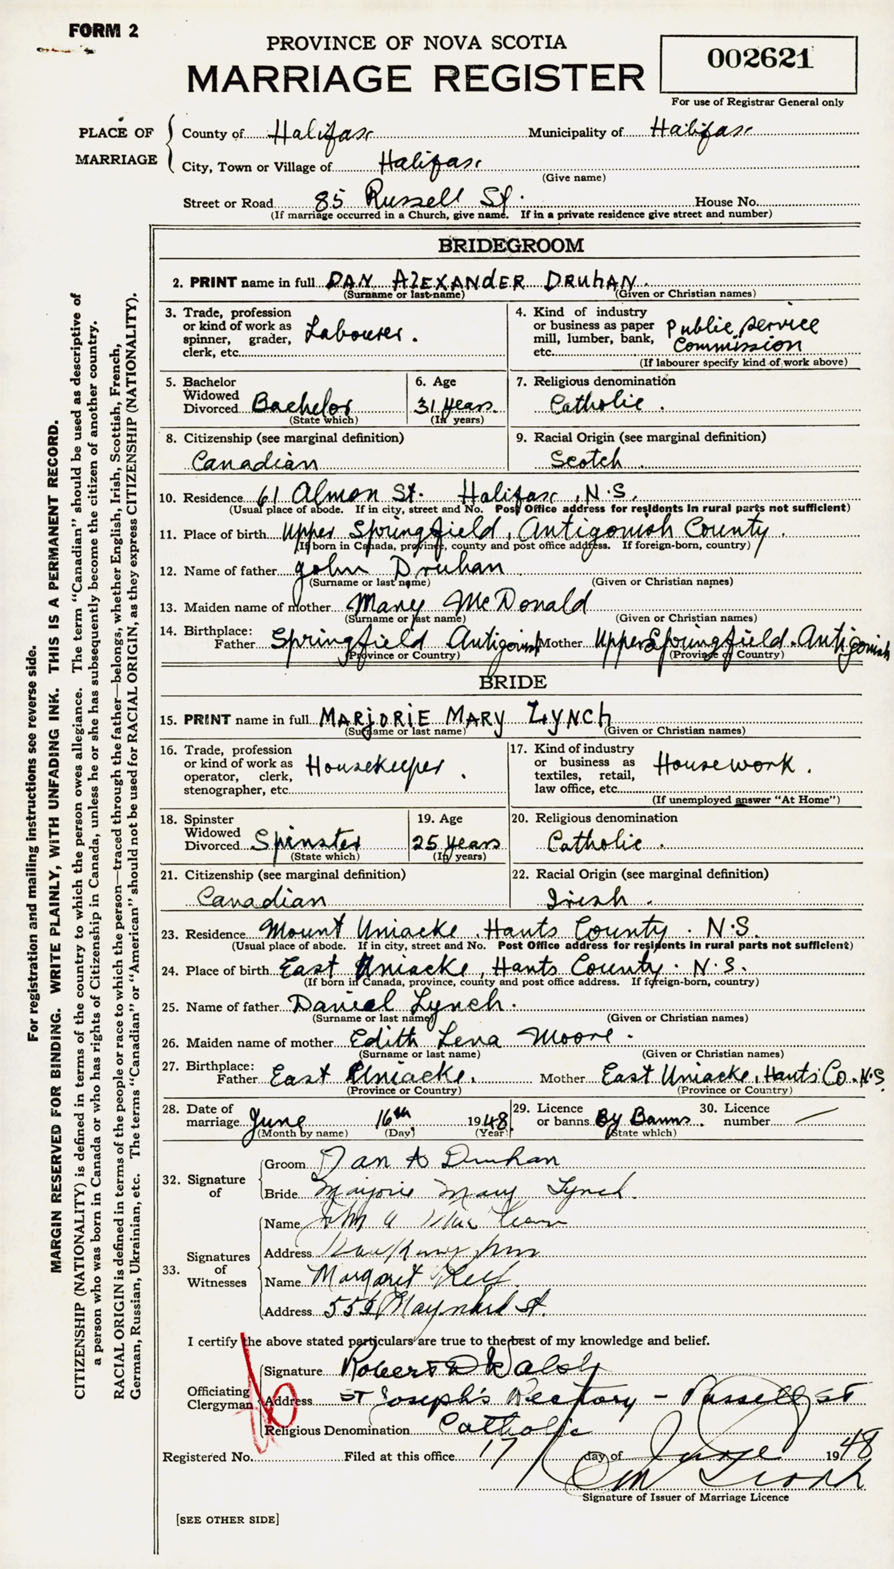 FORM 2
PROVINCE OF NOVA SCOTIA
MARRIAGE REGISTER
002621
For use of Registrar General only
PLACE OF MARRIAGE
County of Halifax Municipality of Halifax
City, Town or Village of Halifax
(Give name)
Street or Road 85 Russell St. House No.
(If marriage occurred in a Church, give name. If in a private residence give street and number)
BRIDEGROOM
2. PRINT name in full DAN ALEXANDER DRUHAN
(Surname or last name) (Given or Christian names)
3. Trade, profession or kind of work as spinner, grader, clerk, etc. Labourer.
4. Kind of industry or business as paper mill, lumber, bank, etc. Public Service Commission
(If labourer specify kind of work above)
5. Bachelor Widowed Divorced Bachelor
(State which)
6. Age 31 years
(In years)
7. Religious denomination Catholic.
8. Citizenship (see marginal definition) Canadian
9. Racial Origin (see marginal definition) Scotch.
10. Residence 61 Almon St. Halifax, N.S.
(Usual place of abode. If in city, street and No. Post Office address for residents in rural parts not sufficient)
11. Place of birth Upper Springfield, Antigonish County.
(If born in Canada, province, county and post office address. If foreign-born, country)
12. Name of father John Druhan
(Surname or last name) (Given or Christian names)
13. Maiden name of mother Mary McDonald
(Surname or last name) (Given or Christian names)
14. Birthplace: Father Springfield Antigonish Mother Upper Springfield. Antigonish
(Province or Country) (Province or Country)
BRIDE
15. PRINT name in full MARJORIE MARY LYNCH
(Surname or last name) (Given or Christian names)
16. Trade, profession or kind of work as operator, clerk, stenographer, etc. Housekeeper.
17. Kind of industry or business as textiles, retail, law office, etc. Housework.
(If unemployed answer "At Home")
18. Spinster Widowed Divorced Spinster
(State which)
19. Age 25 years
(In years)
20. Religious denomination Catholic.
21. Citizenship (see marginal definition) Canadian
22. Racial Origin (see marginal definition) Irish.
23. Residence Mount Uniacke, Hants County. N.S.
(Usual place of abode. If in city, street and No. Post Office address for residents in rural parts not sufficient)
24. Place of birth East Uniacke, Hants County. N.S.
(If born in Canada, province, county and post office address. If foreign-born, country)
25. Name of father Daniel Lynch.
(Surname or last name) (Given or Christian names)
26. Maiden name of mother Edith Lena Moore.
(Surname or last name) (Given or Christian names)
27. Birthplace: Father East Uniacke. Mother East Uniacke, Hants Co. N.S.
(Province or Country) (Province or Country)
28. Date of marriage June 16th 1948
(Month by name) (Day) (Year)
29. Licence or banns By Banns.
(State which)
30. Licence number —
32. Signature of
Groom Dan A Druhan
Bride Marjorie Mary Lynch.
33. Signatures of Witnesses
Name John A
Address
Name Margaret
Address Maynard St.
I certify the above stated particulars are true to the best of my knowledge and belief.
Officiating Clergyman
Signature Robert D Walsh
Address St Joseph's Rectory - Russell St
Religious Denomination Catholic
Registered No. Filed at this office 17 day of June 1948
Signature of Issuer of Marriage Licence
[SEE OTHER SIDE]
For registration and mailing instructions see reverse side.
MARGIN RESERVED FOR BINDING. WRITE PLAINLY, WITH UNFADING INK. THIS IS A PERMANENT RECORD.
CITIZENSHIP (NATIONALITY) is defined in terms of the country to which the person owes allegiance. The term "Canadian" should be used as descriptive of
a person who was born in Canada or who has rights of Citizenship in Canada, unless he or she has subsequently become the citizen of another country.
RACIAL ORIGIN is defined in terms of the people or race to which the person—traced through the father—belongs, whether English, Irish, Scottish, French,
German, Russian, Ukrainian, etc. The terms "Canadian" or "American" should not be used for RACIAL ORIGIN, as they express CITIZENSHIP (NATIONALITY).